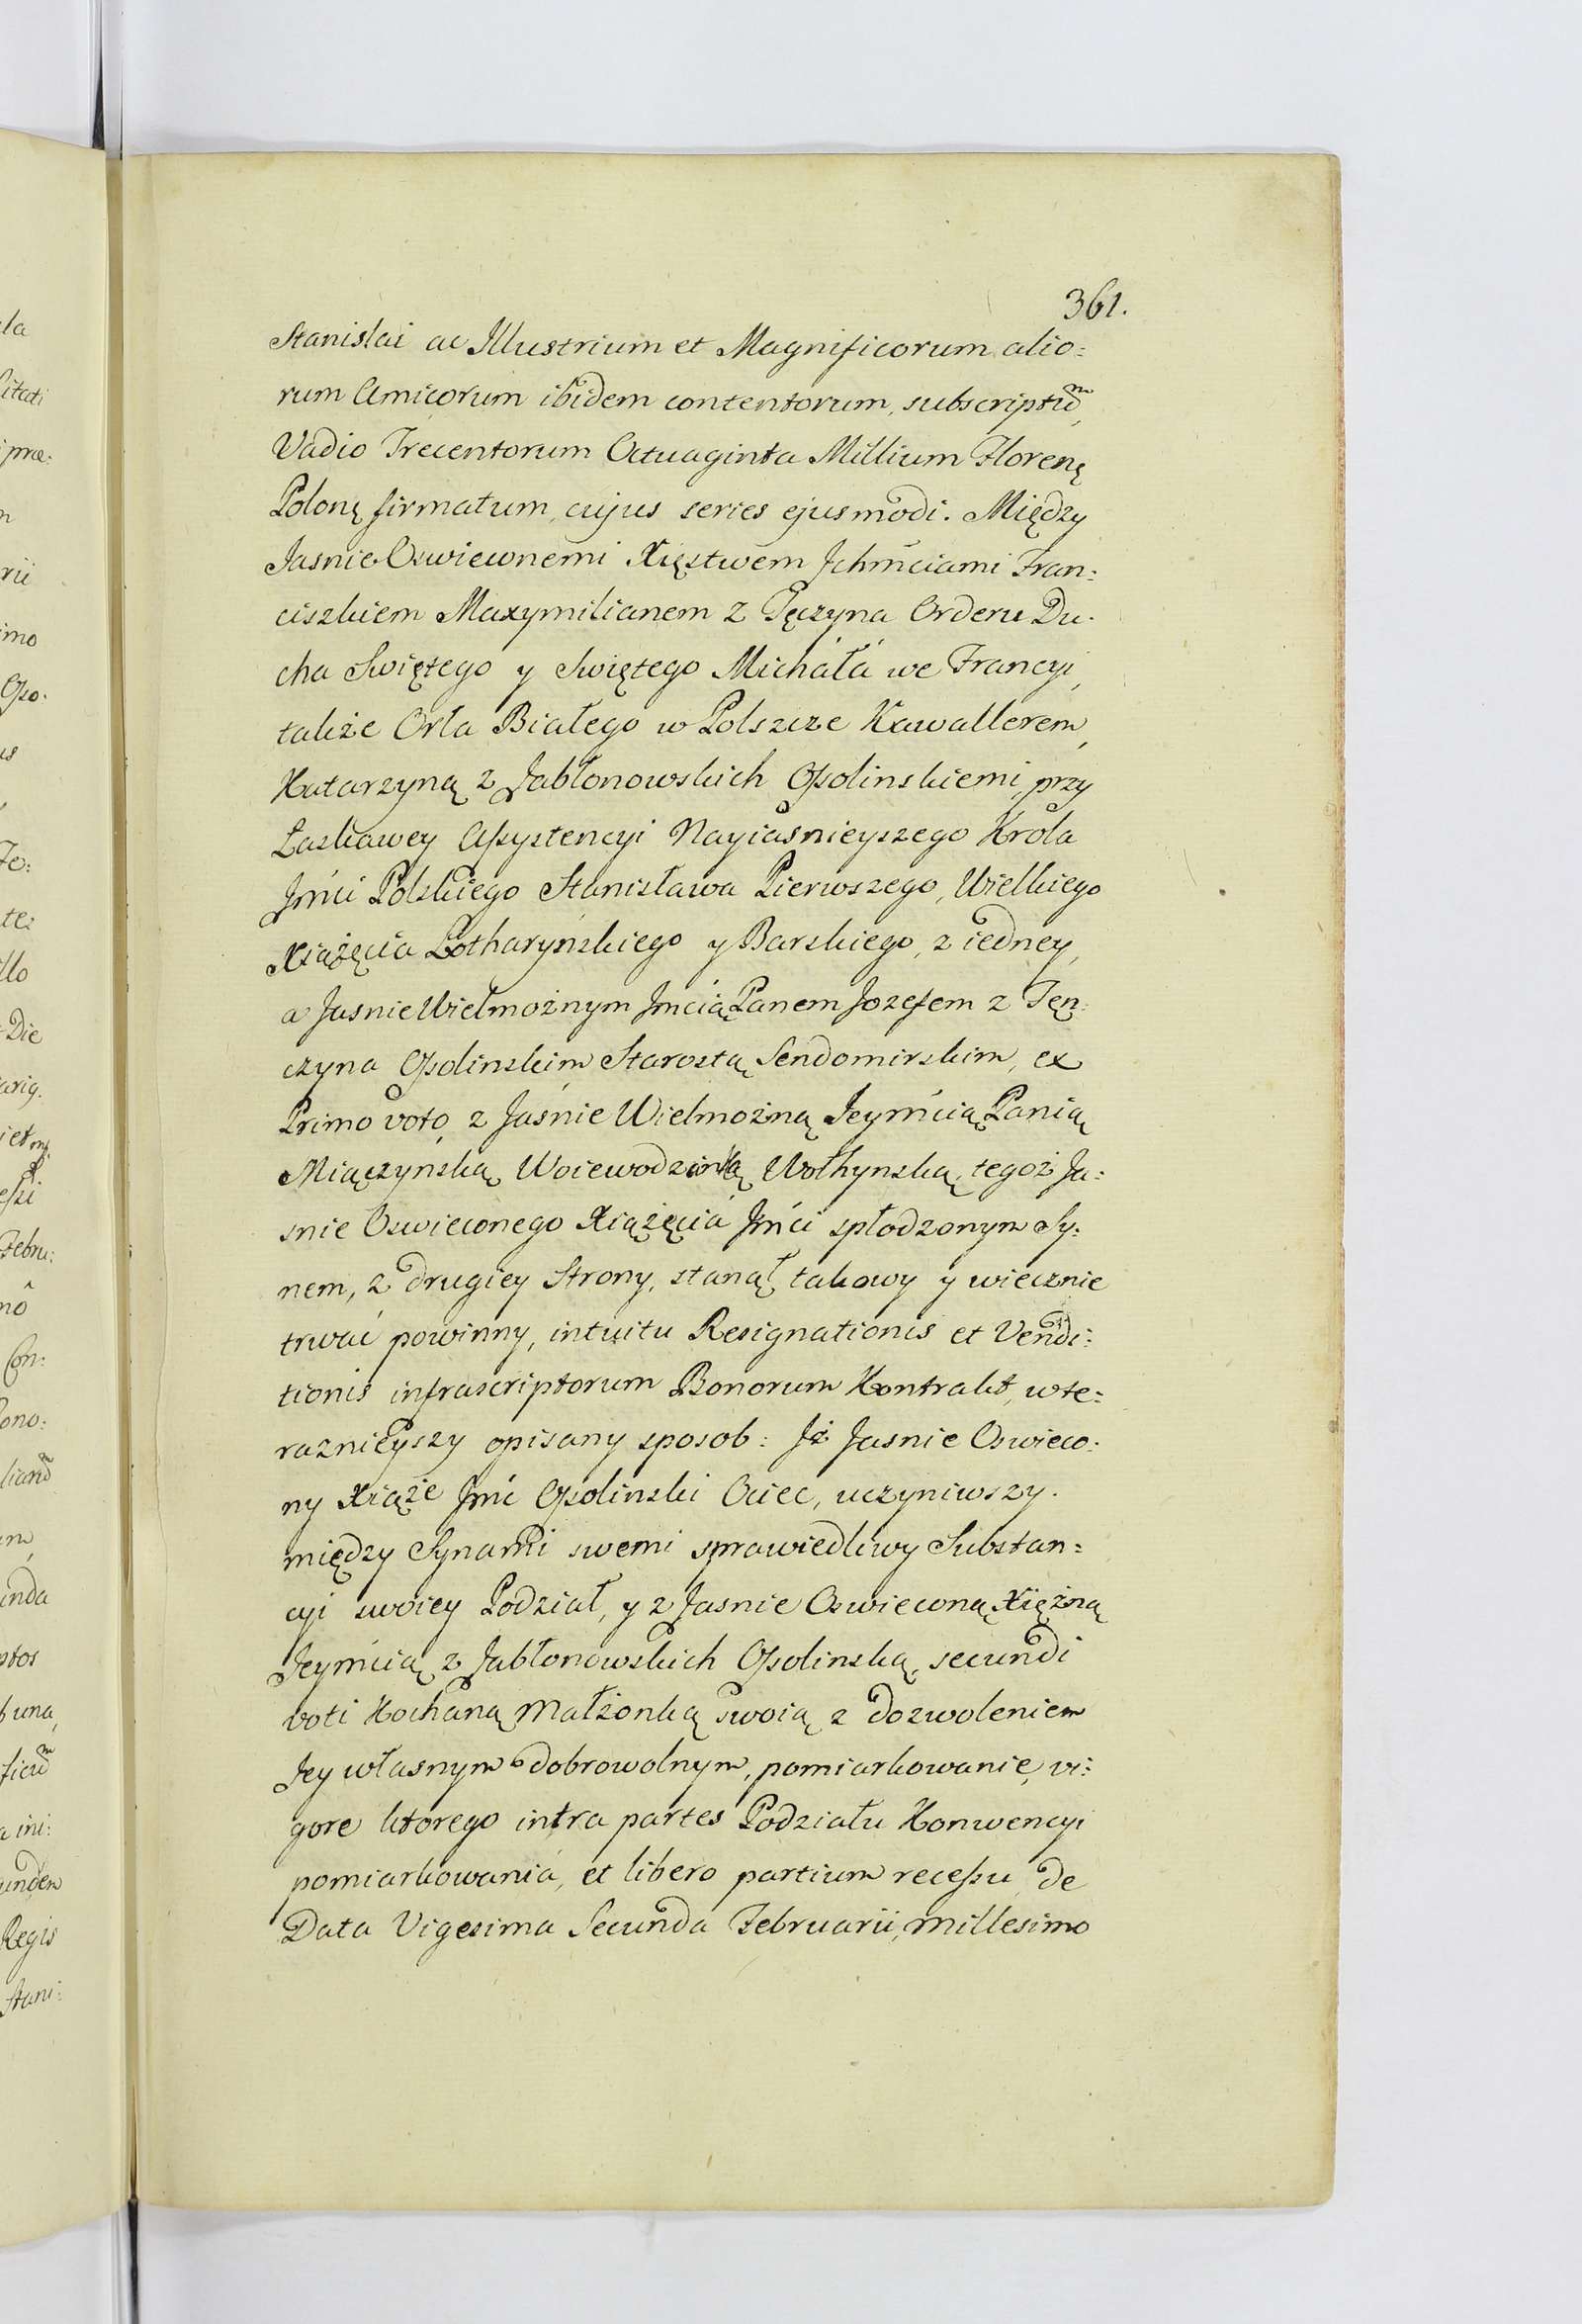 361.
Stanislai ac Illustrium et Magnificorum alio:
rum Amicorum ibidem contentorum, subscriptũ,
Vadio Trecentorum Octuaginta Millium Florenę
Polonę firmatum, cujus series ejusmodi. Między
Jasnie Oswieconemi Xięstwem Jchmciami Fran:
ciszkiem Maxymilianem z Tęczyna Orderu Du.
cha Swiętego y Swiętego Micháłá we Francyi,
także Orła Białego w Polszcze Kawallerem,
Katarzyną z Jabłonowskich Ossolinskiemi, przy
Łaskawey Assystencyi Nayiasnieyszego Krola
Jmći Polskiego Stanisława Pierwszego, Wielkiego
Xiążęcia Lotharyńskiego y Barskiego, z iedney,
a Jasnie Wielmożnym Jmcią Panem Jozefem z Tęn:
czyna Ossolinskim Starostą Sendomirskim, ex
Primo voto, z Jaśnie Wielmożną Jeymćią Panią
Miączyńską Woiewodzanką Wołhynską, tegoż Ja:
snie Oswieconego Xiążęciá Jmći spłodzonym Sy:
nem, z drugiey Strony, stanął takowy y wiecznie
trwać powinny, intuitu Resignationis et Vendi:
tionis infrascriptorum Bonorum Kontrakt, w te:
raznieyszy opisany sposob: Jż Jasnie Oswieco:
ny Xiąże Jmć Ossolinski Ociec, uczyniwszy.
między Synami swemi sprawiedliwy Substan:
cyi swoiey Podział, y z Jasnie Oswieconą Xiężną
Jeymćią z Jabłonowskich Ossolinską, secundi
voti Kochaną Małżonką swoią z dozwoleniem
Jey własnym dobrowolnym, pomiarkowanie, vi:
gore ktorego intra partes Podziału Konwencyi
pomiarkowaniá, et libero partium recessu, de
Data Vigesima Secunda Februarii, Millesimo